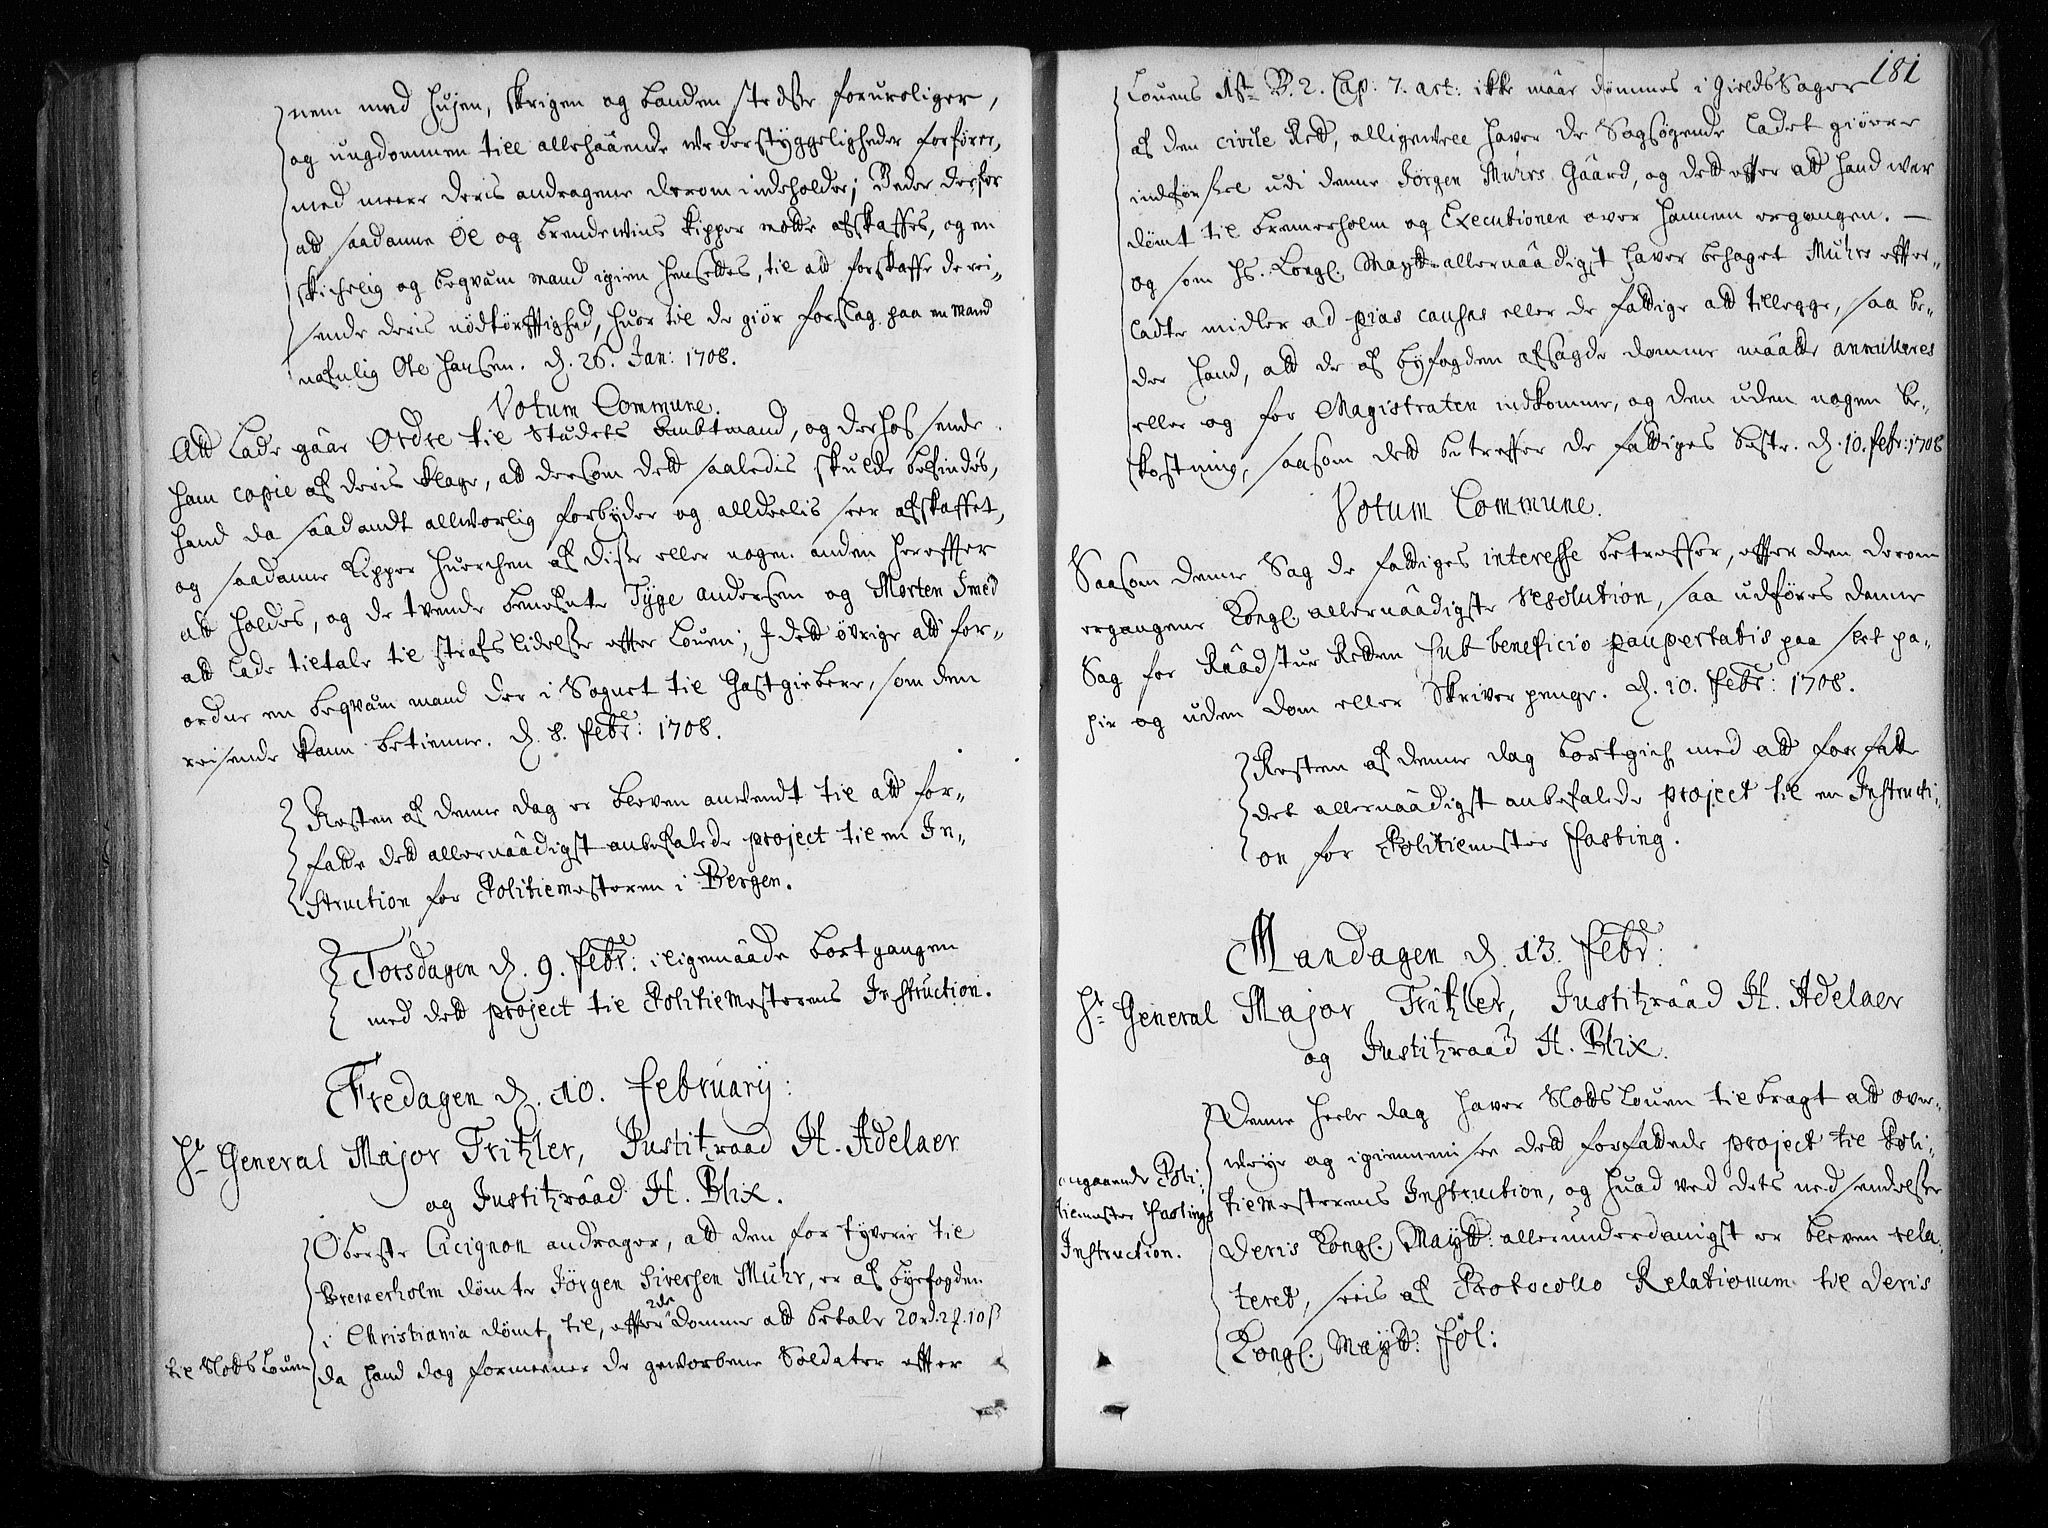 nem med hujen, skrigen og banden stedsse foruroliger,
og ungdommen till allehaande wederstyggeligheder forfører,
med meere deris andragende derom indeholder; Beder derfor
att saadanne Øl og brendewins kipper motte afskaffes, og en
skichelig og beqvam mand igien hensettes, til att forskaffe de rei-
sende deris nødtørfftighed, huor til de giør forslag paa en Mand
nafnlig Ole Hansen. d. 26. Jan: 1708.
Votum Commune.
Att lade gaar Ordre til Stædets Ambtmand, og derhos sende
ham copie af deris klage, att dersom dett saaledis skulde befindes,
hand da saadandt allworlig forbyder og alldeelis seer afskaffet,
og saadanne Kipper huerchen af disse eller nogen anden hereffter
att holdes, og de tvende benefnte Tyge andersen og Morten Smed
att lade tiltale til strafs lidelse effter Louen; J dett øvrige att for-
ordne en beqvam mand der i Sognet til Gastgieberr, som den
reisende kann betienne. d. 8. febr: 1708.
Resten af denne dag er bleven anvendt til att for-
fatte dett allernaadigst anbefalede project til en In-
struction for Politiemesteren i Bergen.
Torsdagen d. 9. febr: iligemaade bortgangen
med dett project til Politiemesterens Instruction.
Fredagen d. 10. february:
Hr General Major Tritzler, Justitzraad H. Adelaer
og Justitzraad H. Blix.
Oberste Cicignon andrager, att den for tyverie til
Bremerholm dømte Jørgen Siversen Muhr, er af byefogden
i Christiania dømt til, effter 2de Domme att betale 20 rd. 2 ƶ. 10 ß
til Slots Louen
da hand dog formeener de geworbene Soldater effter
181
Louens 1st B. 2. Cap: 7. art: ikke maae dømmes i Gields Sager
af den civile Rett, alligewell haver de Sagsøgende ladet giøre
indførsel udi denne Jørgen Muhrs Gaard, og dett effter att hand war
dømt til bremerholm og Executionen over hannem ergangen. —
og som Hs. Kongl. Maytt allernaadigst haver behaget Muhrs effter-
ladte midler ad pias causas eller de fattige att tillegge, saa be-
der hand, att de af byfogden afsagde domme maatte annulleres
eller og for Magistraten indkomme, og den uden nogen be-
kostning, saasom dett betreffer de fattiges beste. d. 10. febr: 1708
Votum Commune.
Saasom denne Sag de fattiges interesse betreffer, effter den derom
ergangne Kongl. allernaadigste resolution, saa udføres denne
Sag for Raadstue Retten sub beneficio paupertatis paa slet pa-
pir og uden dom eller Skriver penge. d. 10. febr: 1708.
Resten af denne dag bortgich med att forfatte
det allernaadigst anbefalede project til en Instructi-
on for Politiemester Fasting.
Mandagen d. 13. febr:
Hr General Major Tritzler, Justitzraad H. Adelaer
og Justitzraad H. Blix.
Denne heele dag haver Slotts Louen tilbragt att over-
weye og igiennem see dett forfattede project til Poli-
angaaende Poli-
tiemester Fastings
Instruction.
tiemesterens Instruction, og huad ved dets nedsendelse
Deris Kongl. Maytt: allerunderdanigst er bleven rela-
teret, seeis af Protocollo Relationum til Deris
Kongl. Maytt: fol: